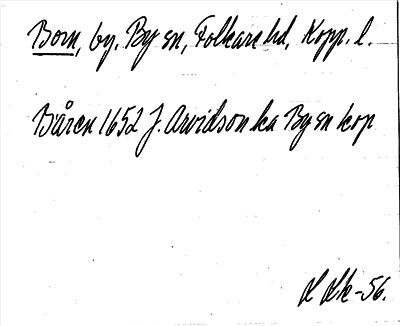 Born, by. By sn, Folkare hd, Kopp. l.
Båren 1652 J. Arvidson ka By sn kop